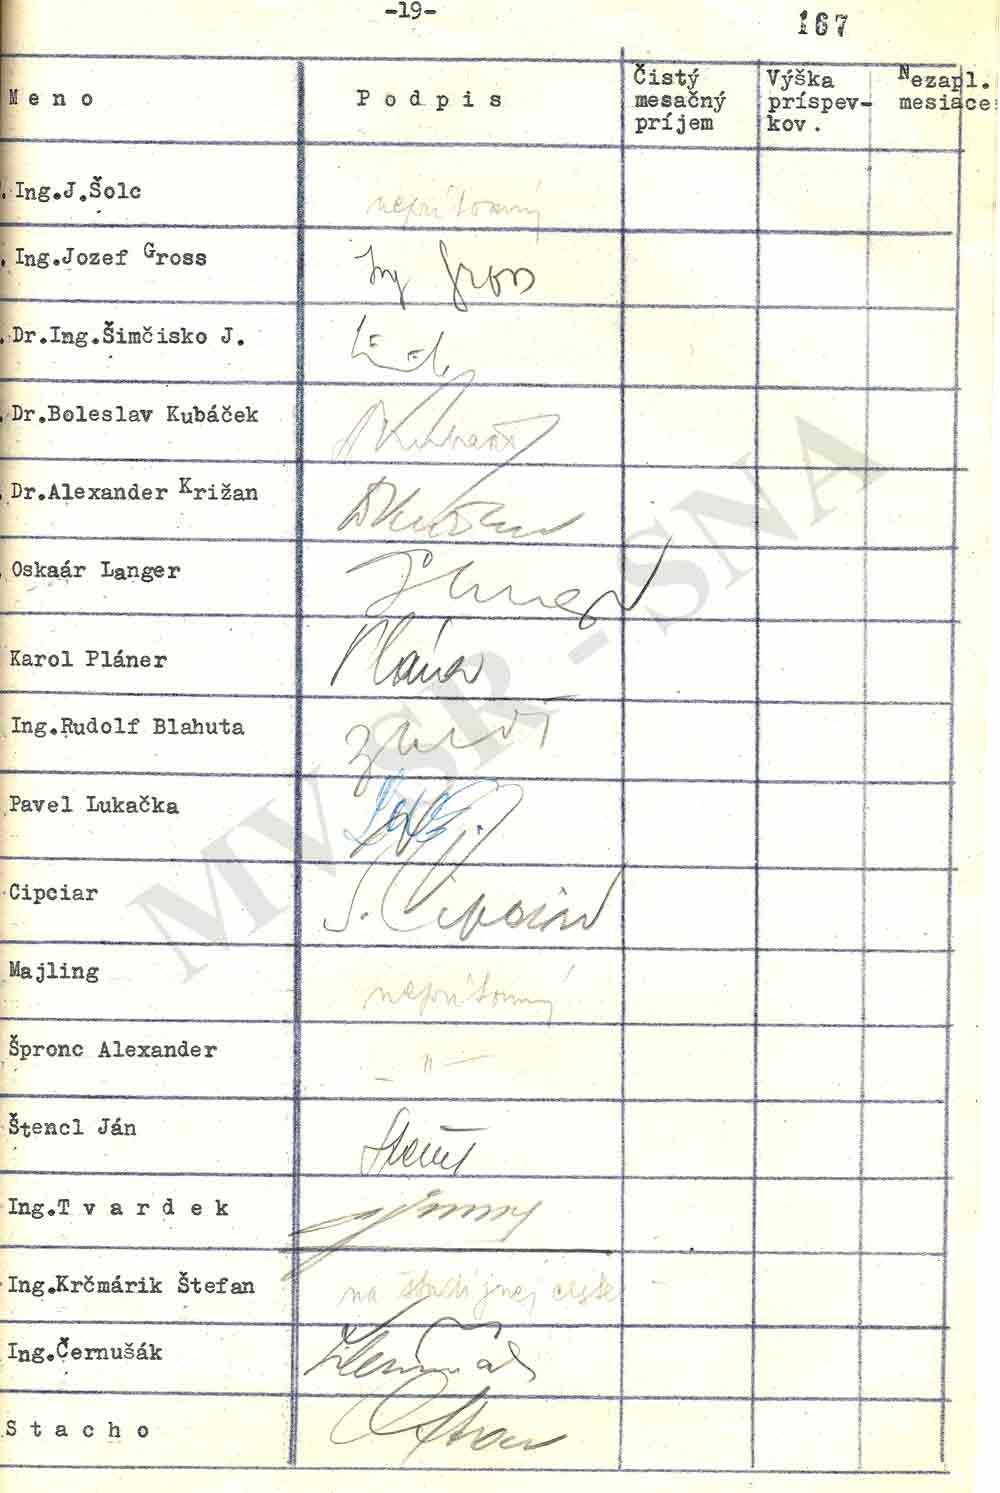 -19-
167
Meno Podpis Čistý mesačný príjem Výška príspev-kov. Nezapl. mesiace
Ing.J.Šolc neprítomný
Ing.Jozef Gross Ing Gross
Dr.Ing.Šimčisko J.
Dr.Boleslav Kubáček
Dr.Alexander Križan
Oskaár Langer
Karol Pláner
Ing.Rudolf Blahuta
Pavel Lukačka
Cipciar
Majling neprítomný
Špronc Alexander — " —
Štencl Ján
Ing.Tvardek
Ing.Krčmárik Štefan na študijnej ceste
Ing.Černušák
Stacho
MV SR - SNA